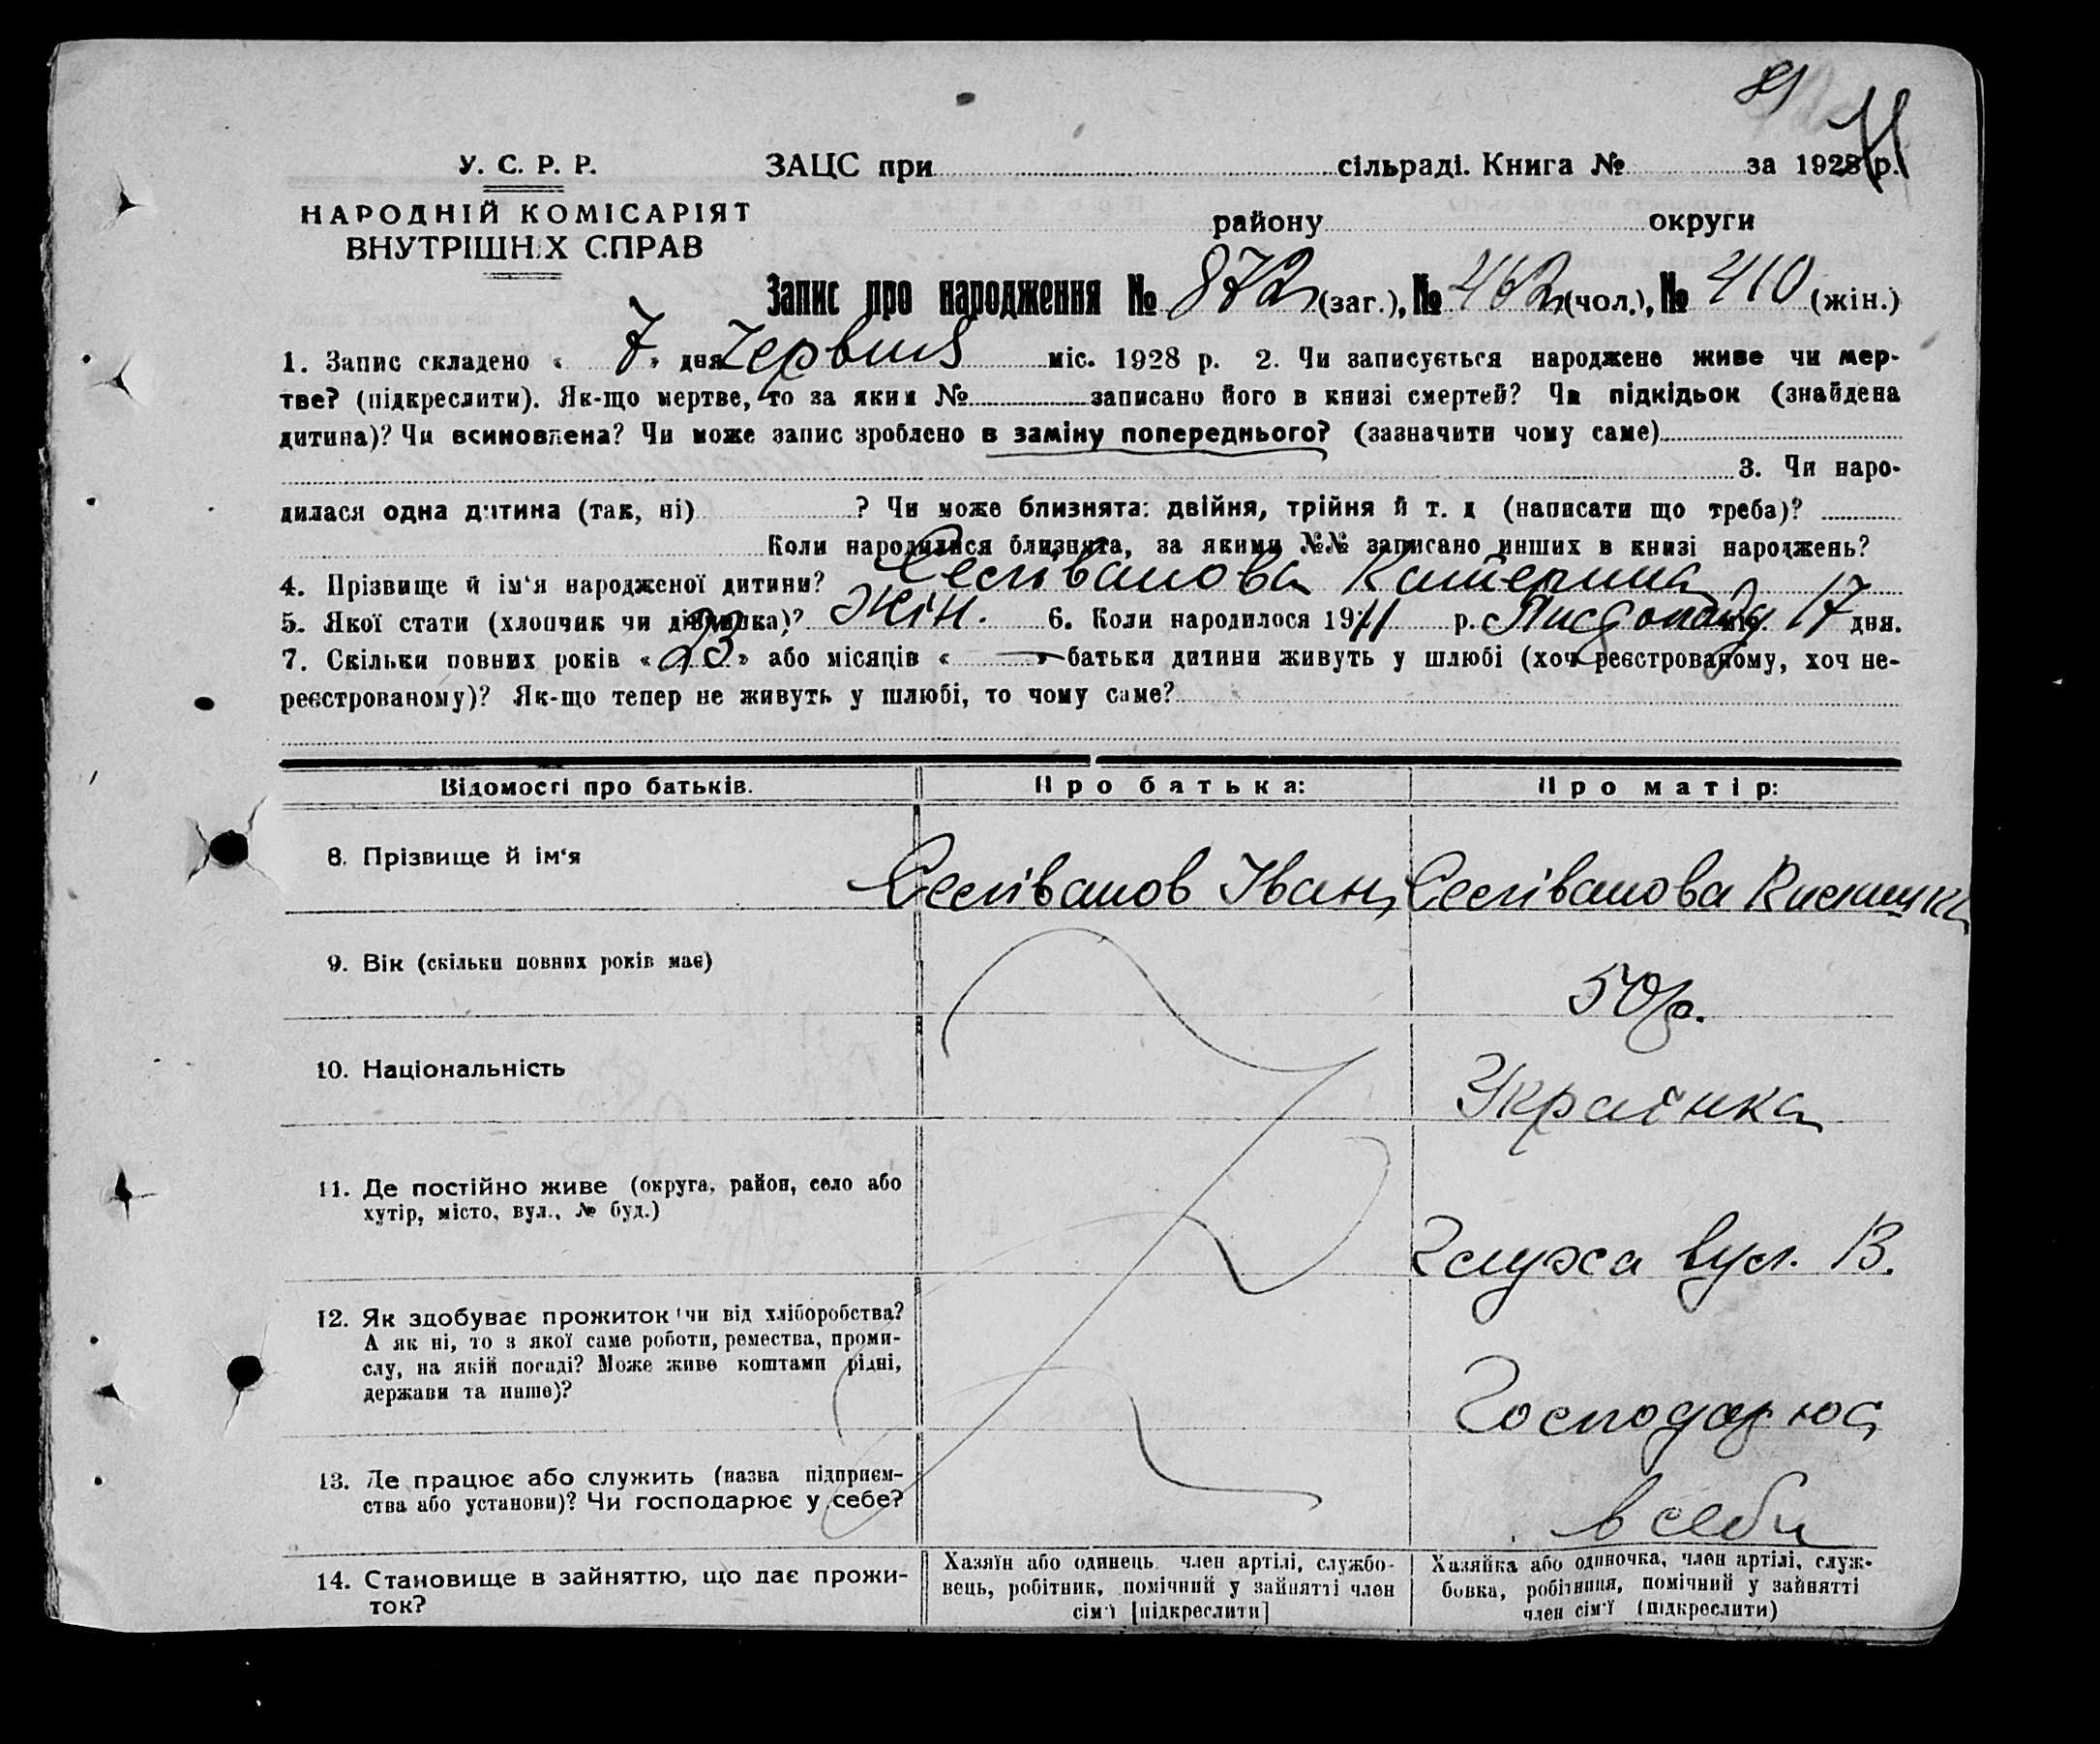 81
У. С. Р. Р.
ЗАЦС при сільраді. Книга № за 1928 р.
НАРОДНІЙ КОМІСАРІЯТ
ВНУТРІШНІХ СПРАВ
району округи
Запис про народження № 872 (заг.), № 462 (чол.), № 410 (жін.)
1. Запис складено « 7 » дня Червня міс. 1928 р. 2. Чи записується народжене живе чи мер-
тве? (підкреслити). Як-що мертве, то за яким № записано його в книзі смертей? Чи підкідьок (знайдена
дитина)? Чи всиновлена? Чи може запис зроблено в заміну попереднього? (зазначити чому саме)
3. Чи наро-
дилася одна дитина (так, ні) ? Чи може близнята: двійня, трійня й т. д (написати що треба)?
Коли народилися близнята, за якими №№ записано инших в книзі народжень?
4. Прізвище й ім‘я народженої дитини? Селіванова Катерина
5. Якої стати (хлопчик чи дівчинка)? Жін. 6. Коли народилося 1911 р. Листопаду міс. 17 дня.
7. Скільки повних років « 23 » або місяців « — » батьки дитини живуть у шлюбі (хоч реєстрованому, хоч не-
реєстрованому)? Як-що тепер не живуть у шлюбі, то чому саме?
Відомості про батьків. Про батька: Про матір:
8. Прізвище й ім‘я Селіванов Іван Селіванова
9. Вік (скільки повних років має) 50 р.
10. Національність Українка
11. Де постійно живе (округа, район, село або
хутір, місто, вул., № буд.) вул. В.
12. Як здобуває прожиток чи від хліборобства?
А як ні, то з якої саме роботи, ремества, проми-
слу, на якій посаді? Може живе коштами рідні,
держави та инше)? Господарює
13. Де працює або служить (назва підприєм-
ства або установи)? Чи господарює у себе? в себи
14. Становище в зайняттю, що дає прожи-
ток?
Хазяїн або одинець член артілі, службо-
вець, робітник, помічний у зайнятті член
сім‘ї [підкреслити]
Хазяйка або одиночка, член артілі, служ-
бовка, робітниця, помічний у зайнятті
член сім‘ї (підкреслити)